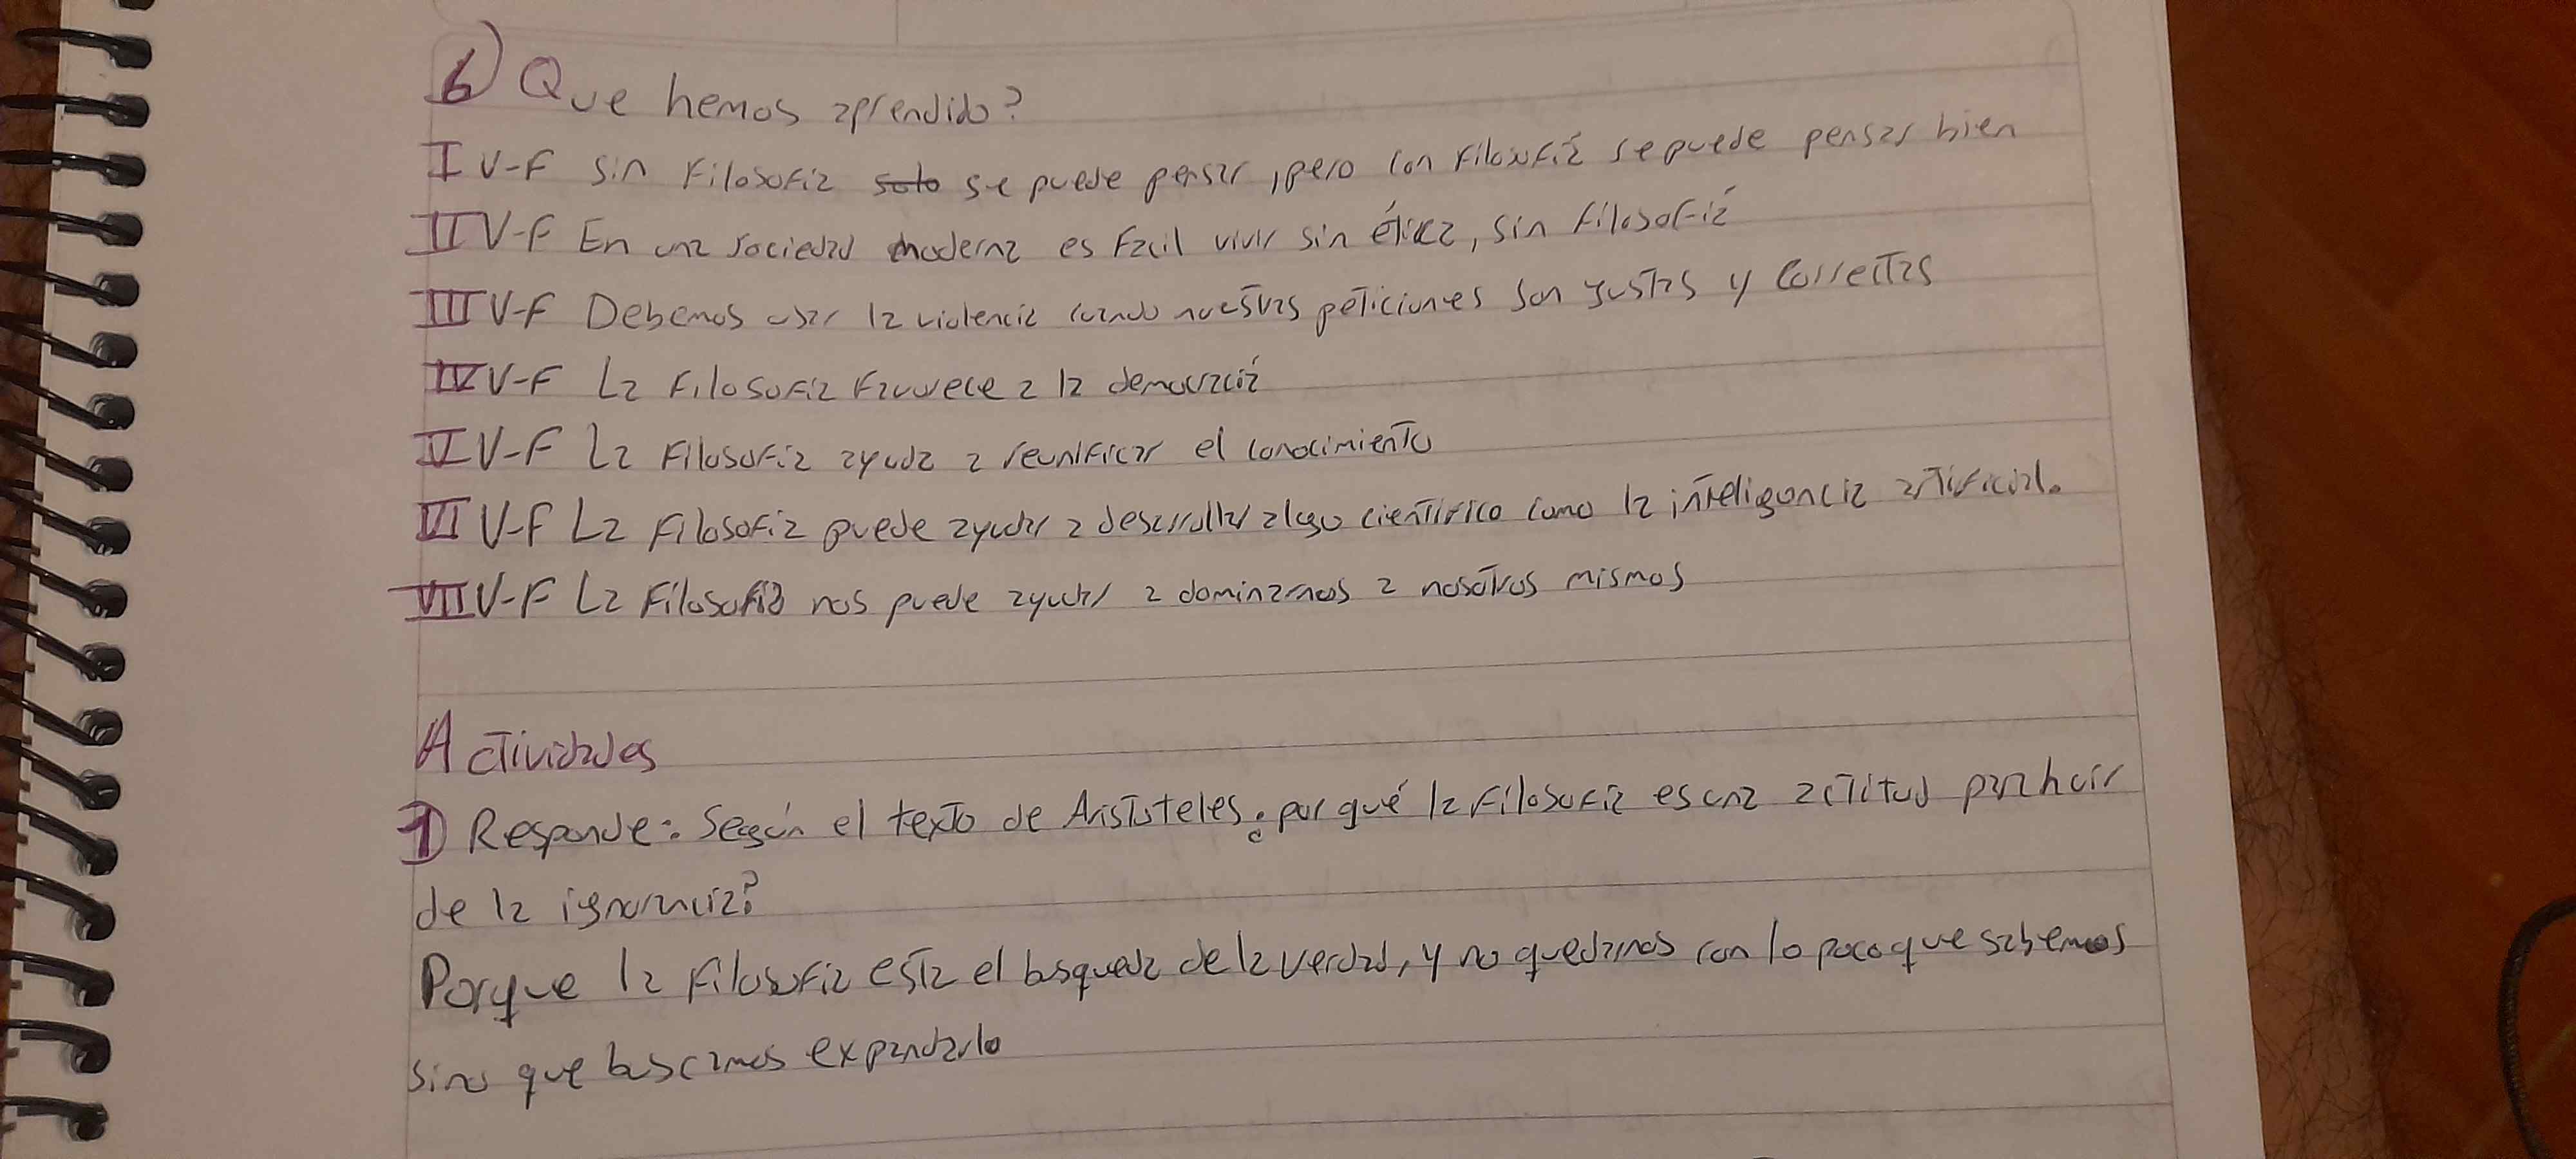 6) Que hemos aprendido?
I V-F Sin Filosofia solo se puede pensar, pero con Filosofiá se puede pensar bien
II V-F En una sociedad moderna es Facil vivir sin ética, sin filosofiá
III V-F Debemos usar la violencia cuando nuestras peticiones son justas y correctas
IV V-F La Filosofia Favorece a la democraciá
V V-F La Filosofia ayuda a reunificar el conocimiento
VI V-F La Filosofia puede ayudar a desarrollar algo cientifico como la inteligencia artificial.
VII V-F La Filosofia nos puede ayudar a dominarnos a nosotros mismos
Actividades
1) Responde: Según el texto de Aristoteles ¿por qué la Filosofia es una actitud para huir
de la ignorancia?
Porque la Filosofia esta el busqueda de la verdad, y no quedarnos con lo poco que sabemos
sino que buscamos expandarlo